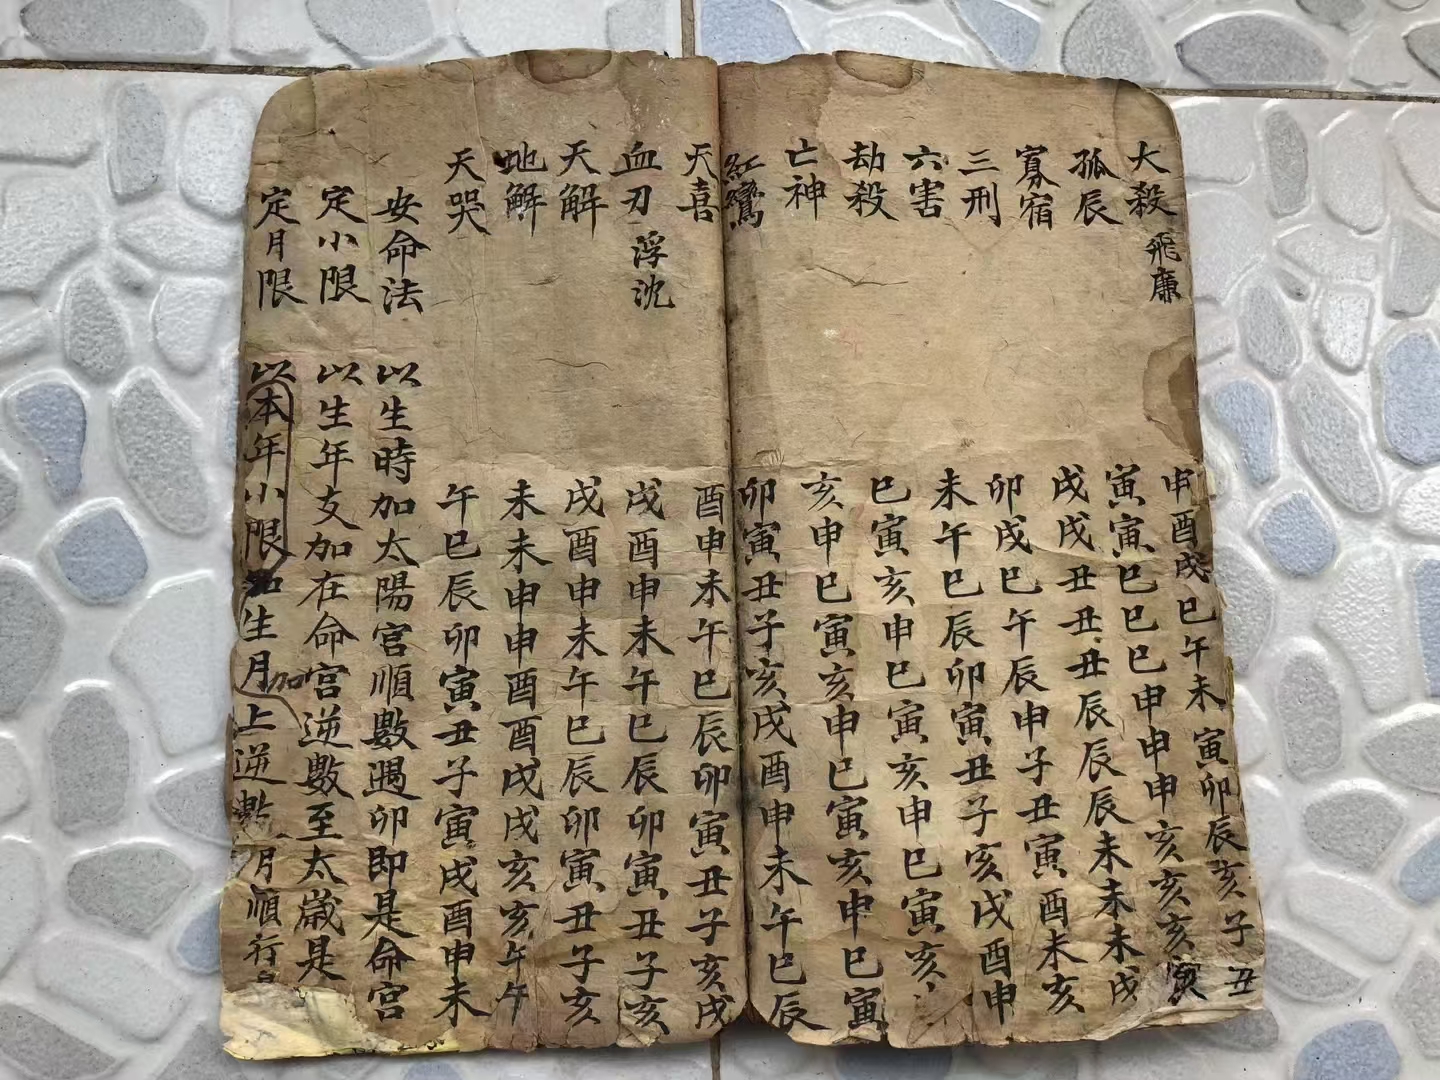 大殺 飛廉 申酉戌巳午未寅卯辰亥子丑
孤辰 寅寅巳巳巳申申申亥亥亥寅
寡宿 戌戌丑丑丑辰辰辰未未未戌
三刑 卯戌巳午辰申子丑寅酉未亥
六害 未午巳辰卯寅丑子亥戌酉申
劫殺 巳寅亥申巳寅亥申巳寅亥
亡神 亥申巳寅亥申巳寅亥申巳寅
紅鸞 卯寅丑子亥戌酉申未午巳辰
天喜 酉申未午巳辰卯寅丑子亥戌
血刃 浮沈 戌酉申未午巳辰卯寅丑子亥
天解 戌酉申未午巳辰卯寅丑子亥
地解 未未申申酉酉戌戌亥亥午午
天哭 午巳辰卯寅丑子寅戌酉申未
安命法 以生時加太陽宮順數遇卯即是命宮
定小限 以生年支加在命宮逆數至太歲是
定月限 以本年小限生月加上逆數月順行